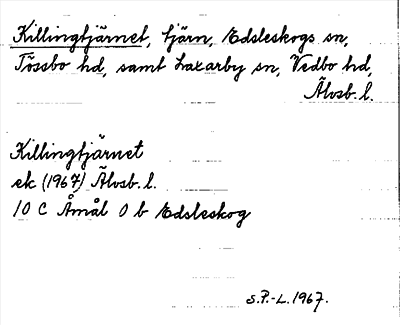 Killingtjärnet, tjärn, Edsleskogs sn,
Tössbo hd, samt Laxarby sn, Vedbo hd,
Älvsb. l.
Killingtjärnet
ek (1967) Älvsb. l.
10 C Åmål 0 b Edsleskog
S.P.-L. 1967.